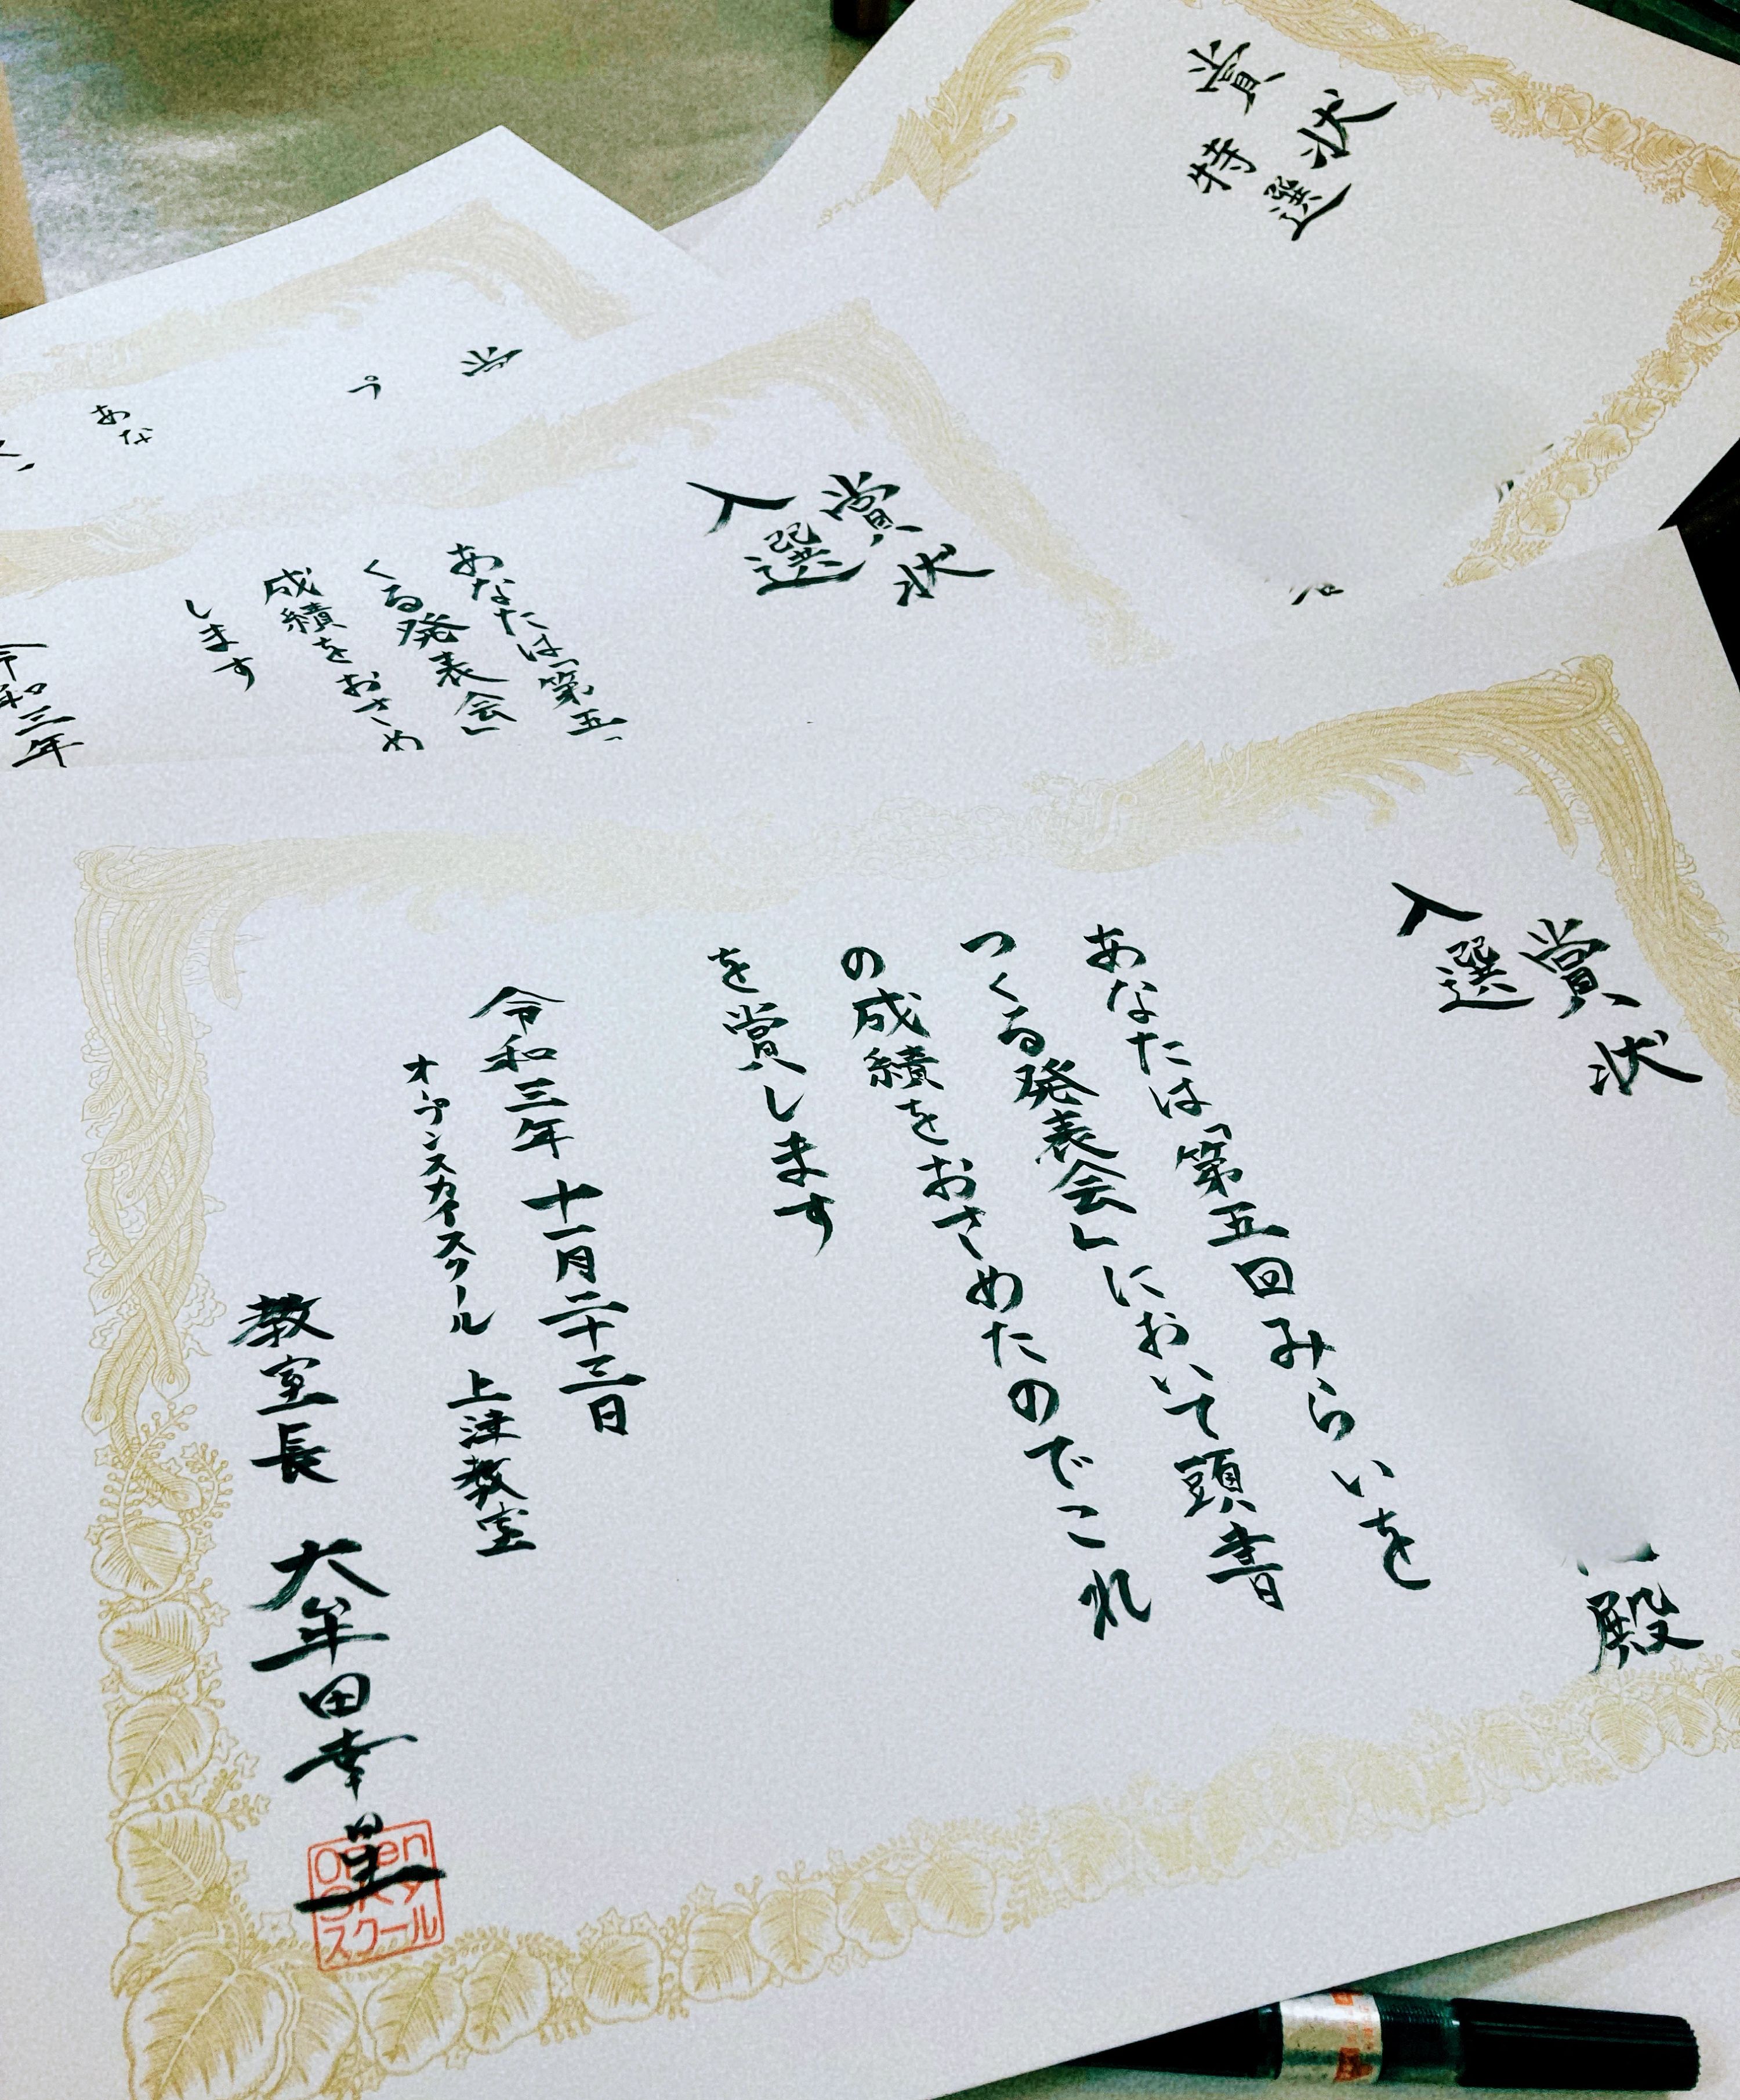 賞状
入選
殿
あなたは「第五回みらいを
つくる発表会」において頭書
の成績をおさめたのでこれ
を賞します
令和三年 十一月二十三日
オープンスカイスクール 上津教室
教室長 大牟田幸
Open
Sky
スクール
賞状
入選
あなたは「第五
くる発表会」
成績をおさめ
します
令和三年
賞状
特選
プ
あな